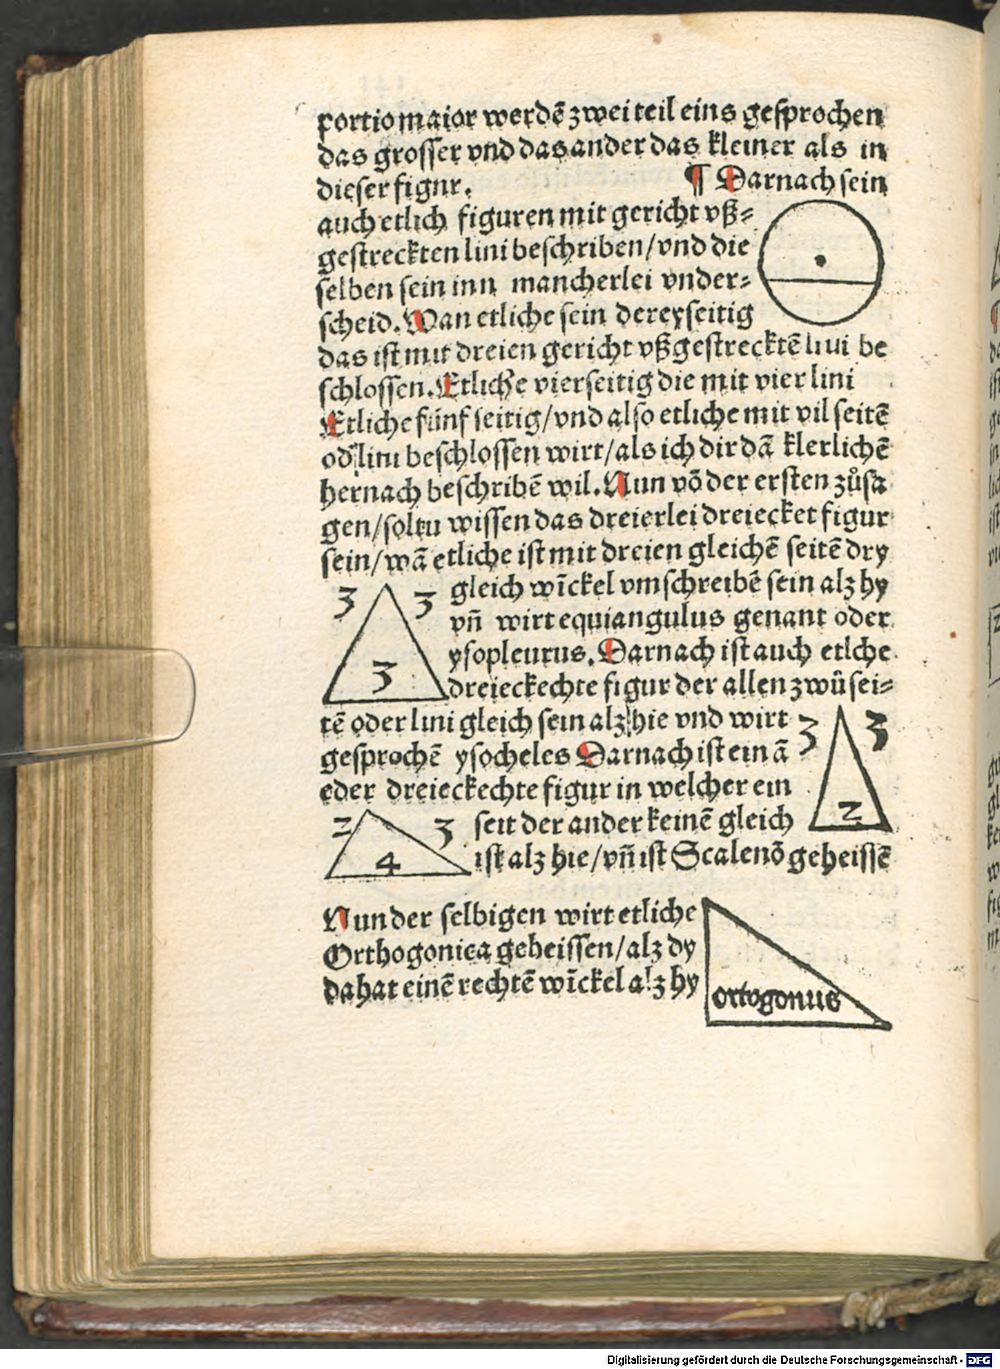 portio maior werdē zwei teil eins gesprochen
das grosser vnd das ander das kleiner als in
dieser figur. ¶ Darnach sein
auch etlich figuren mit gericht vß⸗
gestreckten lini beschriben/vnd die
selben sein inn mancherlei vnder⸗
scheid. Wan etliche sein dereyseitig
das ist mit dreien gericht vßgestrecktē liui be
schlossen. Etliche vierseitig die mit vier lini
Etliche fünf seitig/vnd also etliche mit vil seitē
od' lini beschlossen wirt/als ich dir dā klerlichē
hernach beschribē wil. Nun vō der ersten zůsa
gen/soltu wissen das dreierlei dreiecket figur
sein/wā etliche ist mit dreien gleichē seitē dry
3 3 gleich wīckel vmschreibē sein alz hy
vn̄ wirt equiangulus genant oder
3 ysopleurus. Darnach ist auch etlche
dreieckechte figur der allen zwů sei⸗
tē oder lini gleich sein alz hie vnd wirt 3 3
gesprochē ysocheles Darnach ist ein ā
eder dreieckechte figur in welcher ein 2
2 3 seit der ander keinē gleich
4 ist alz hie/vn̄ ist Scalenō geheissē
Nun der selbigen wirt etliche
Orthogonica geheissen/alz dy
da hat einē rechtē wīckel alz hy ortogonus
Digitalisierung gefördert durch die Deutsche Forschungsgemeinschaft - DFG